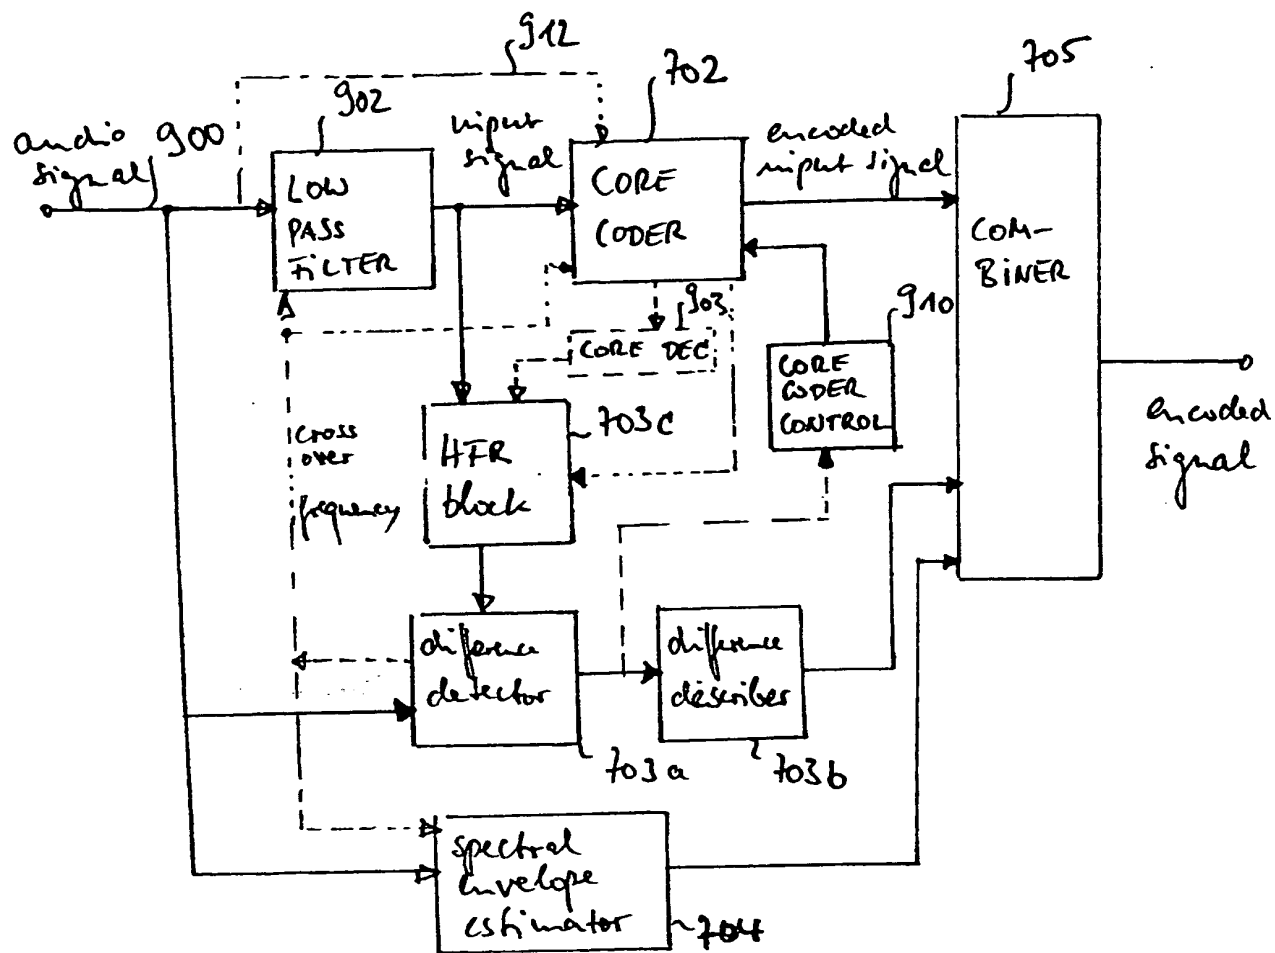 912
702
705
902
audio
signal
900
input
signal
encoded
input signal
LOW
PASS
FILTER
CORE
CODER
COM-
BINER
903
910
CORE DEC
CORE
CODER
CONTROL
703c
HFR
block
cross
over
frequency
encoded
signal
difference
detector
difference
describer
703a
703b
spectral
envelope
estimator
704